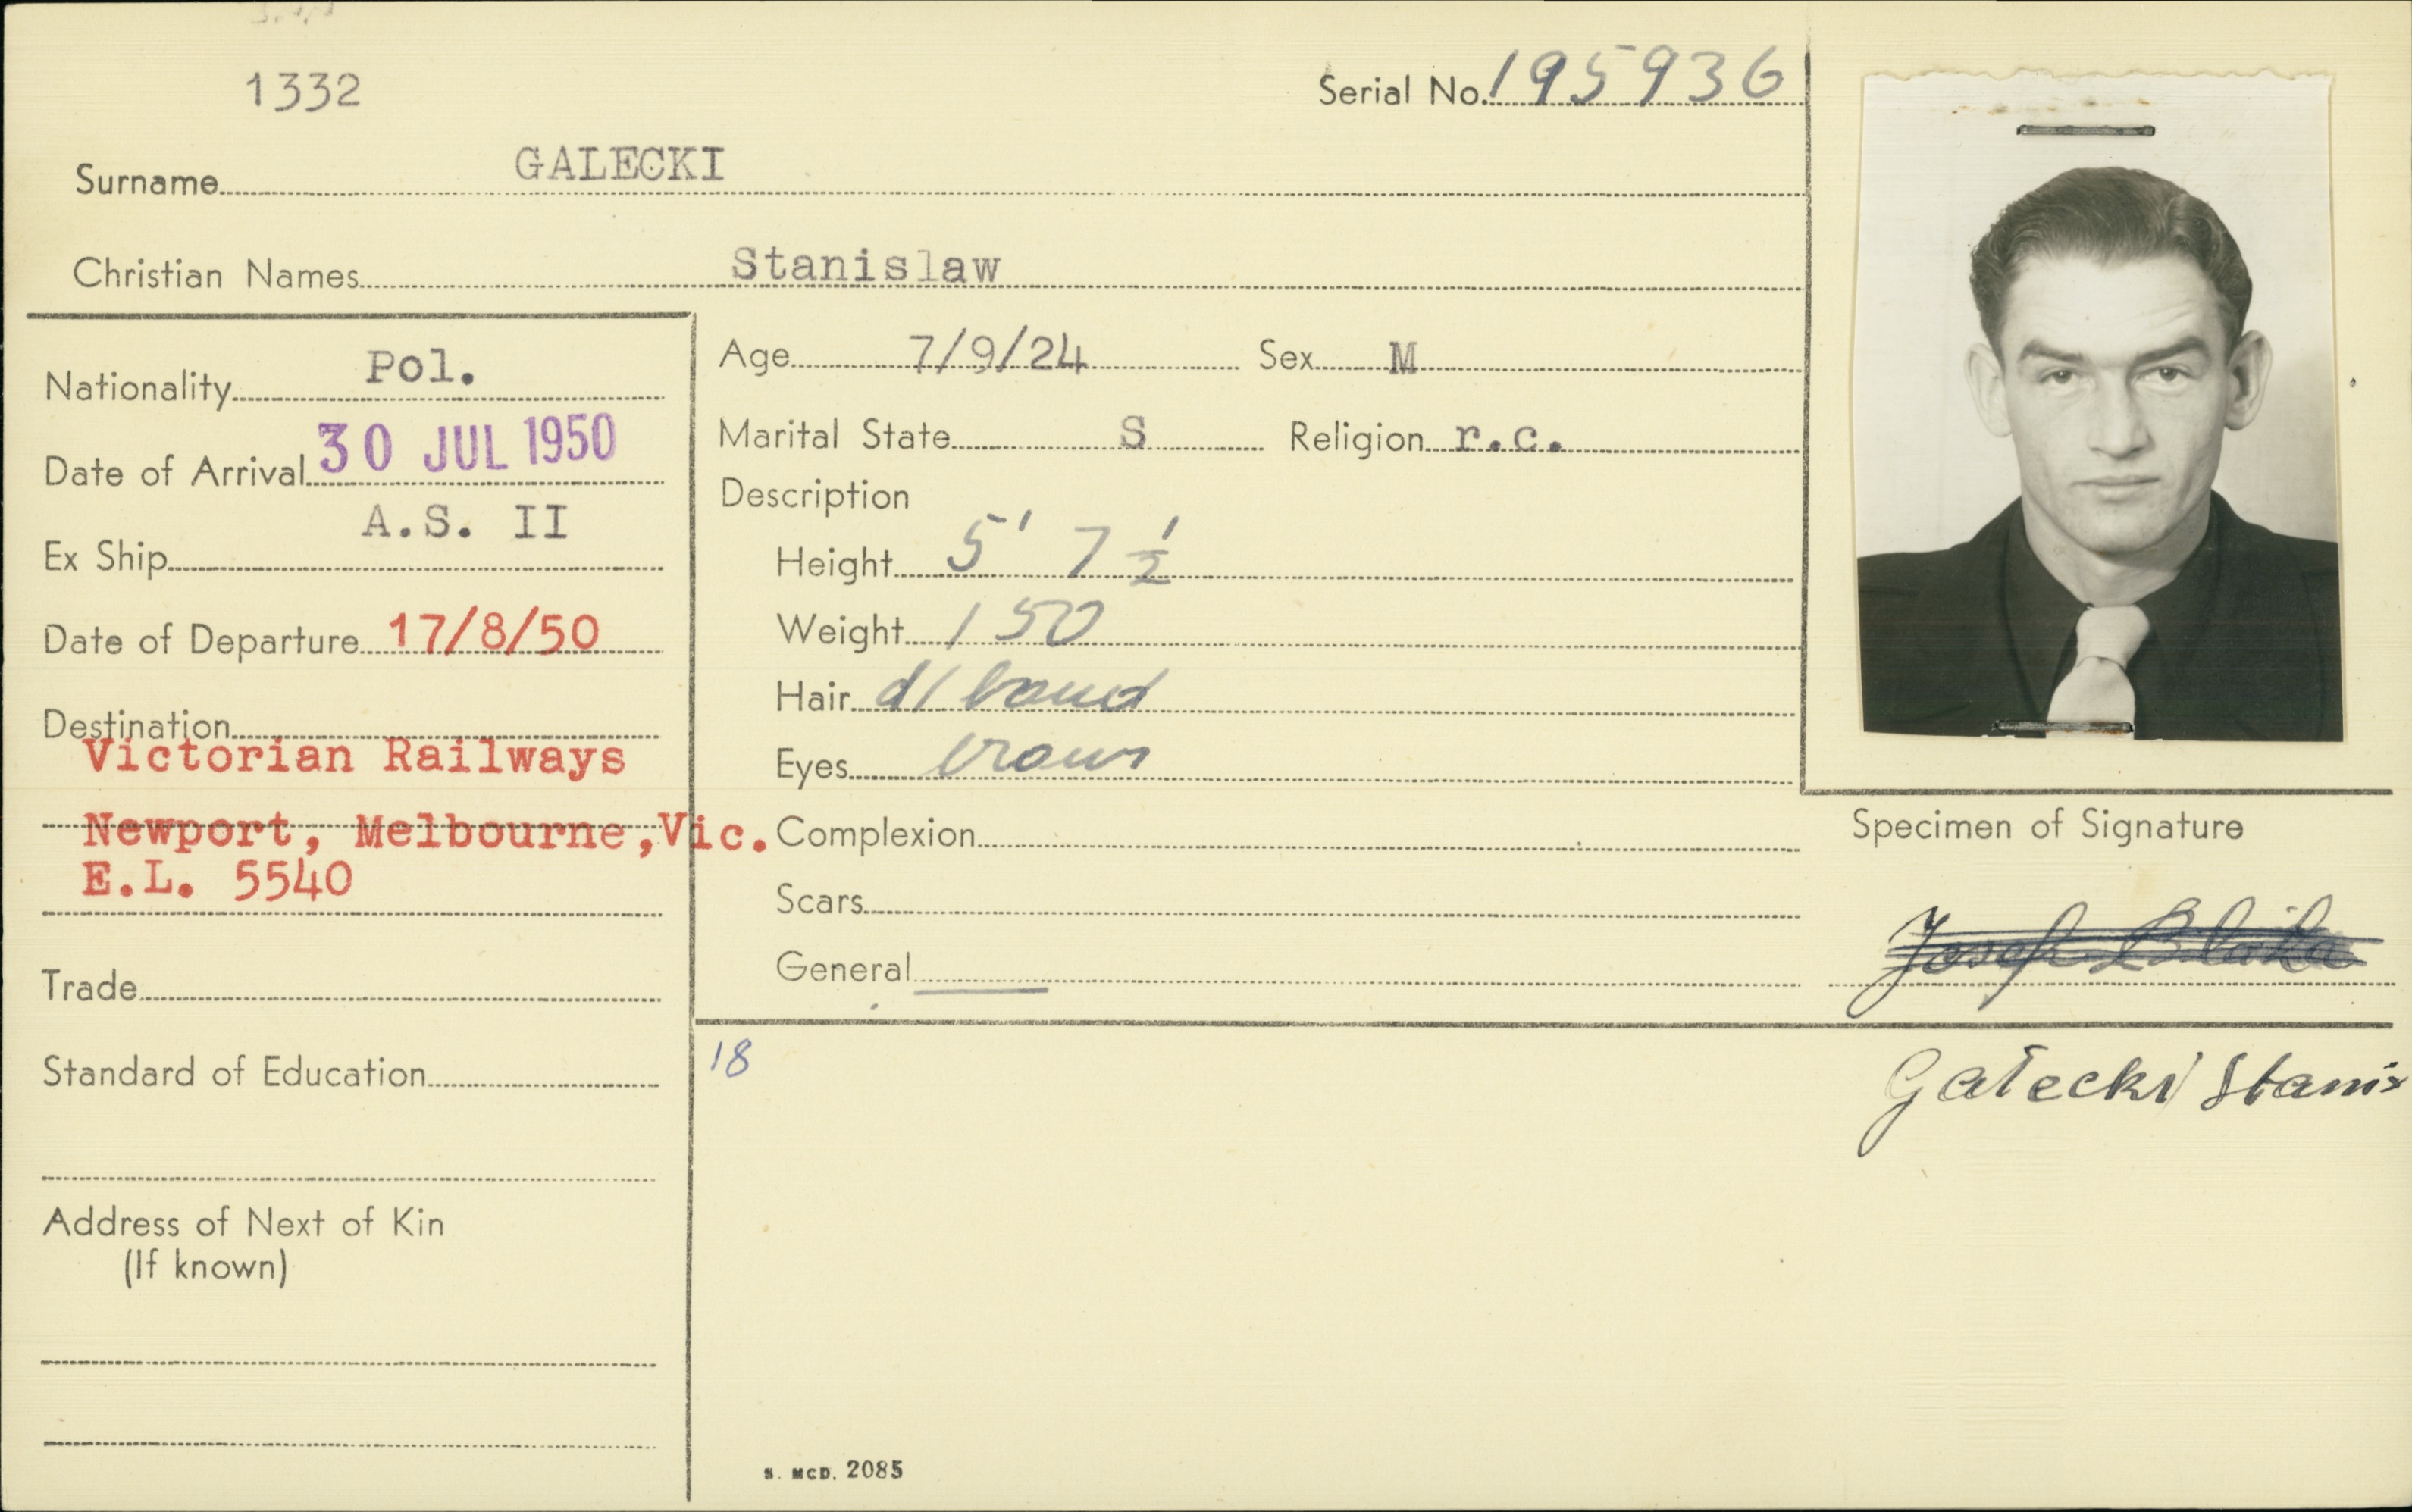 1332
Serial No. 195936
Surname GALECKI
Christian Names Stanislaw
Nationality Pol.
Date of Arrival 30 JUL 1950
Ex Ship A.S. II
Date of Departure 17/8/50
Destination
Victorian Railways
Newport, Melbourne,Vic.
E.L. 5540
Trade
Standard of Education
Address of Next of Kin
(If known)
Age 7/9/24 Sex M
Marital State S Religion r.c.
Description
Height 5' 7 1/2
Weight 150
Hair
Eyes brown
Complexion
Scars
General
18
S. MCD. 2085
Specimen of Signature
Josef
Gałecki Stanis